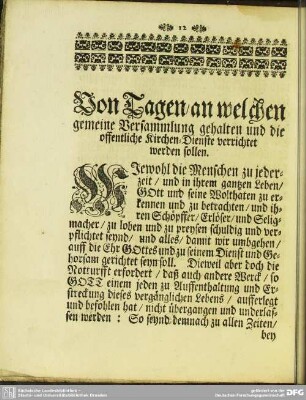 12
Von Tagen/an welchen
gemeine Versammlung gehalten und die
offentliche Kirchen-Dienste verrichtet
werden sollen.
WIewohl die Menschen zu jeder-
zeit/ und in ihrem ganzen Leben/
GOtt und seine Wolthaten zu er-
kennen und zu betrachten/ und ih-
ren Schöpffer/ Erlöser/ und Selig-
macher/ zu loben und zu preysen schuldig und ver-
pflichtet seynd/ und alles/ damit wir umbgehen/
auff die Ehr GOttes und zu seinem Dienst und Ge-
horsam gerichtet seyn soll. Dieweil aber doch die
Notturfft erfordert/ daß auch andere Werck/ so
GOTT einem jeden zu Auffenthaltung und Er-
streckung dieses vergänglichen Lebens/ aufferlegt
und befohlen hat/ nicht übergangen und underlas-
sen werden: So seynd demnach zu allen Zeiten/
bey
Sächsische Landesbibliothek -
Staats- und Universitätsbibliothek Dresden
gefördert von der DFG
Deutschen Forschungsgemeinschaft